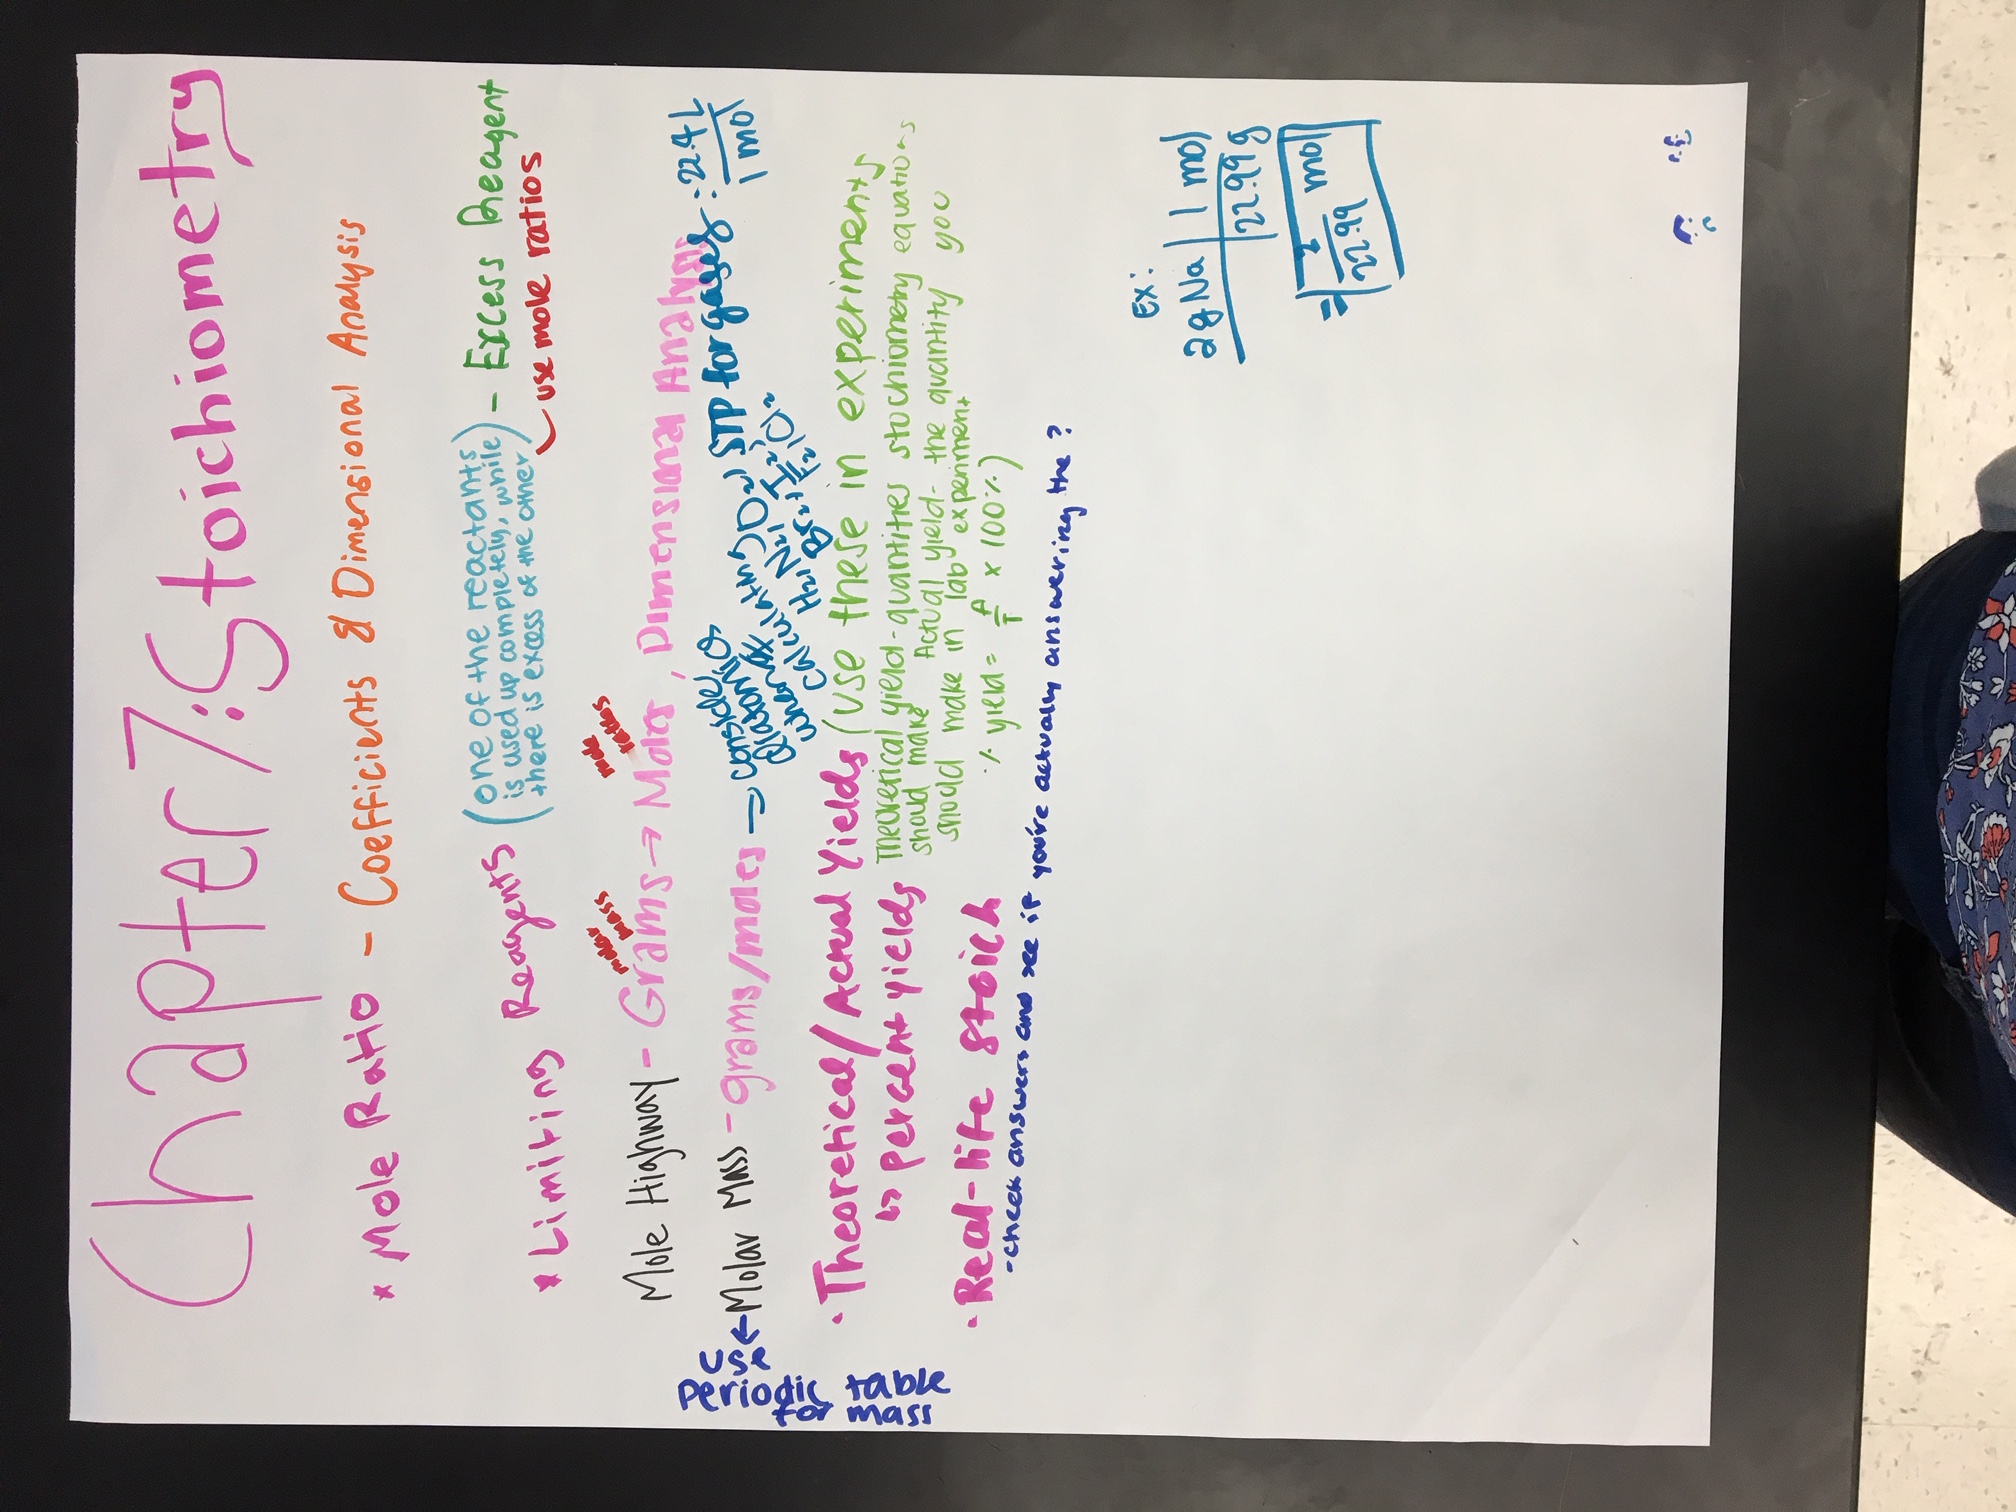 Chapter 7: Stoichiometry
* Mole Ratio - Coefficients & Dimensional Analysis
* Limiting Reagents (one of the reactants) - Excess Reagent
is used up completely, while
there is excess of the other
use mole ratios
molar mass
mole ratios
Mole Highway - Grams → Moles, Dimensional Analysis
Use ← Molar Mass - grams/moles → consider
Periodic table
for mass
diatomic
when
calculating (O₂,
H₂, N₂, I₂,
Br₂, F₂, Cl₂
STP for gases: 22.4 L
1 mol
· Theoretical/Actual Yields (use these in experiments
↳ percent yields
Theoretical yield - quantities stochiometry equations
should make Actual yield - the quantity you
should make in lab experiment
% yield = A/T x 100%)
· Real-life stoich
- check answers and see if you're actually answering the ?
Ex:
2g Na | 1 mol
22.99 g
= 2/22.99 mol